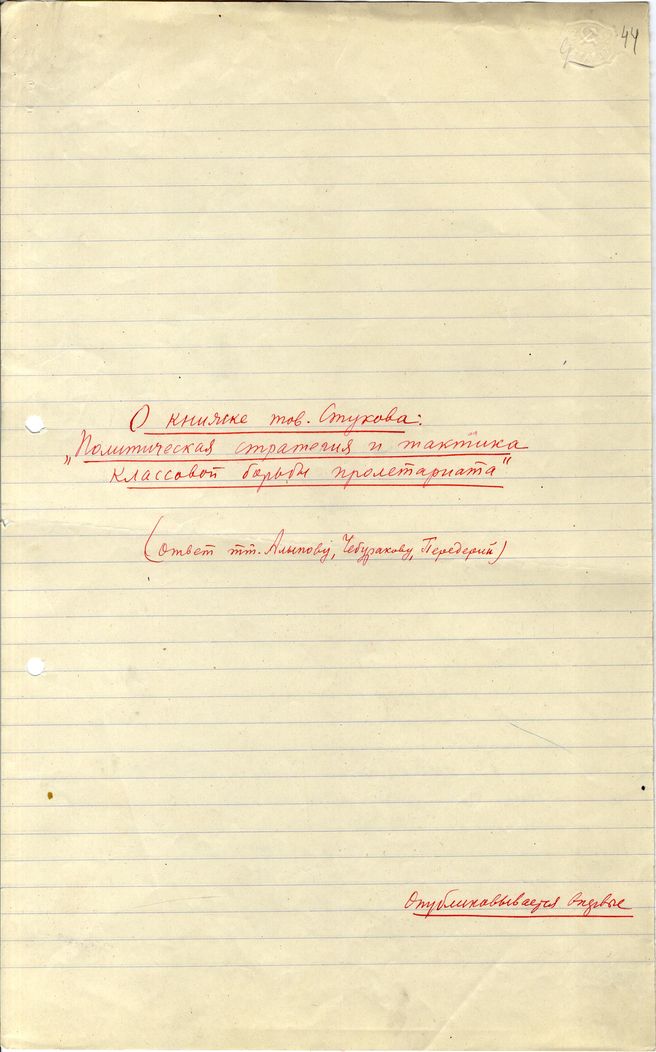 44
О книжке тов. Стукова:
„Политическая стратегия и тактика
классовой борьбы пролетариата"
(Ответ тт. Алыпову, Чебуракову, Передерий)
Опубликовывается впервые